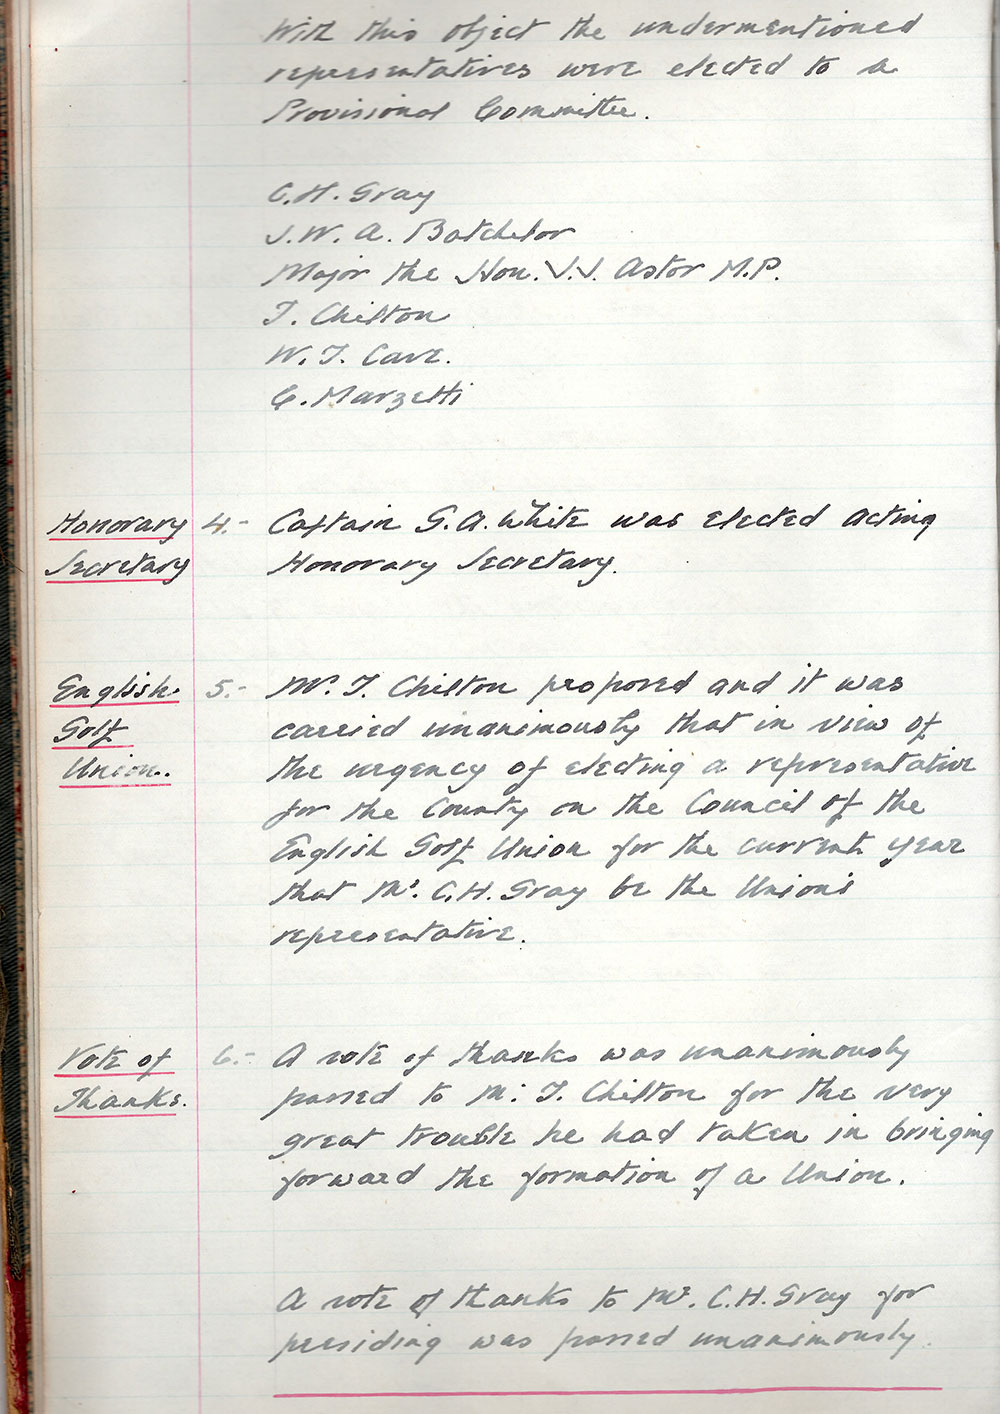 With this object the undermentioned
representatives were elected to a
Provisional Committee.
C.H. Gray
J.W.A. Batchelor
Major the Hon. J.J. Astor M.P.
T. Chilton
W.T. Cave.
C. Marzetti
Honorary 4.- Captain G.A. White was elected acting
Secretary Honorary Secretary.
English 5.- Mr. T. Chilton proposed and it was
Golf carried unanimously that in view of
Union. the urgency of electing a representative
for the County on the Council of the
English Golf Union for the current year
that Mr. C.H. Gray be the Union's
representative.
Vote of 6.- A vote of thanks was unanimously
Thanks. passed to Mr. T. Chilton for the very
great trouble he had taken in bringing
forward the formation of a Union.
A vote of thanks to Mr. C.H. Gray for
presiding was passed unanimously.